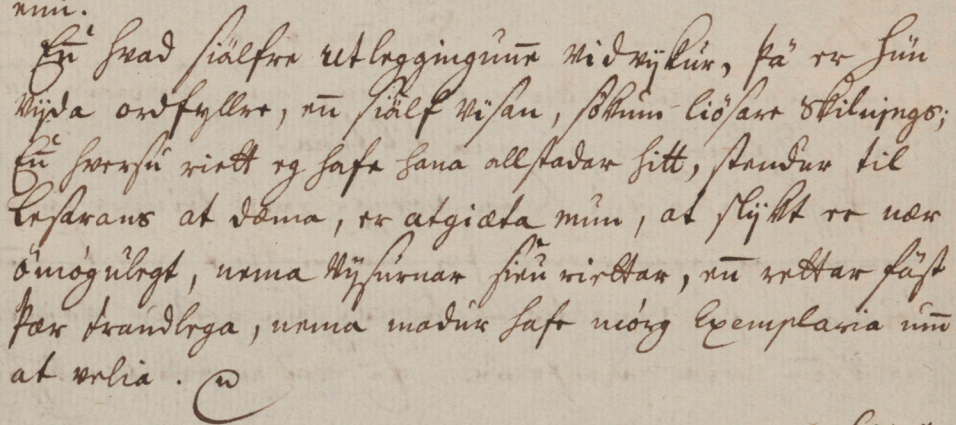 enn.
En̄ hvad siälfre utleggingun̄e vidvÿkur, þä er hün
vÿda ordfyllre, en̄ siälf vÿsan, sökum liösare Skilnings;
En̄ hversu riett eg hafe hana allstadar hitt, stendur til
Lesarans at dæma, er atgiæta mun, at slÿkt er nær
ömögulegt, nema Vÿsurnar sieu riettar, en̄ rettar fäst
þær traudlega, nema madur hafe mörg Exemplaria um̄
at velia.